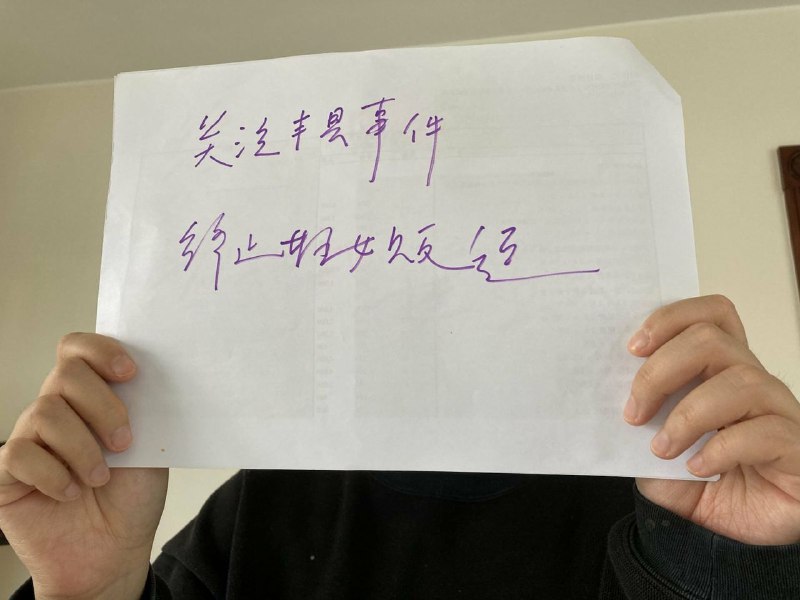 关注丰县事件
终止妇女贩运